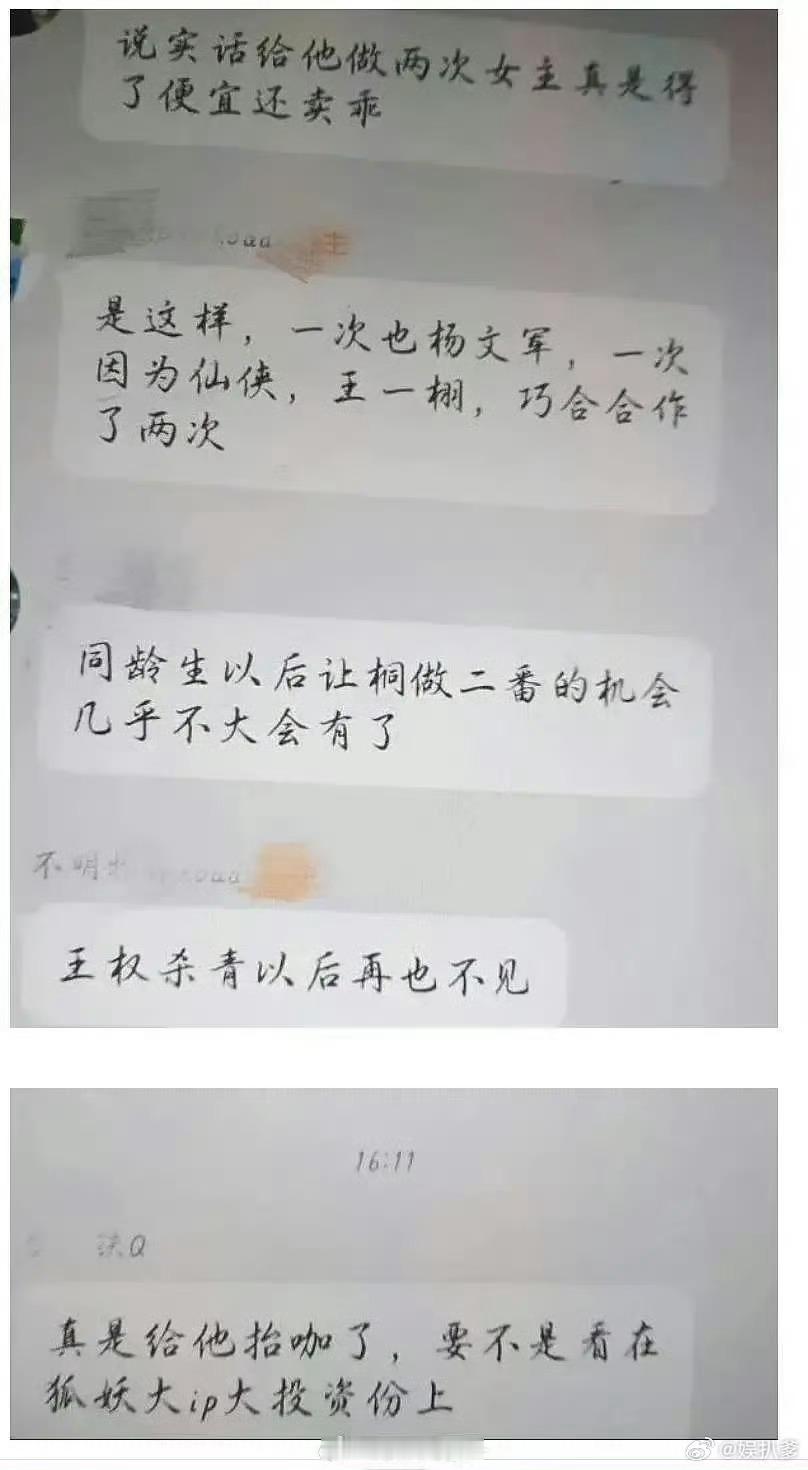 说实话给他做两次女主真是得
了便宜还卖乖
主
是这样，一次也杨文军，一次
因为仙侠，王一栩，巧合合作
了两次
同龄生以后让桐做二番的机会
几乎不大会有了
不明
王权杀青以后再也不见
16:11
Q
真是给他抬咖了，要不是看在
狐妖大ip大投资份上
@娱扒爹